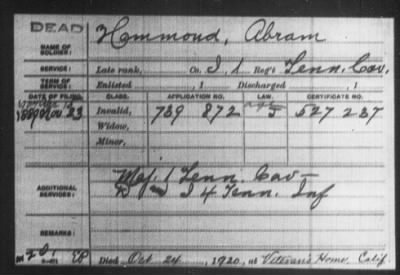 DEAD
Hammond, Abram
NAME OF SOLDIER:
SERVICE: Late rank, Co. I, 1 Reg't Tenn. Cav.
TERM OF SERVICE: Enlisted , 1 Discharged , 1
DATE OF FILING. CLASS. APPLICATION NO. LAW. CERTIFICATE NO.
1889 Nov. 23 Invalid, 739 872 527 237
Widow,
Minor,
ADDITIONAL SERVICES: 1 Tenn. Cav
I 4 Tenn. Inf
REMARKS:
Died Oct 24, 1920, at Veterans Home, Calif.